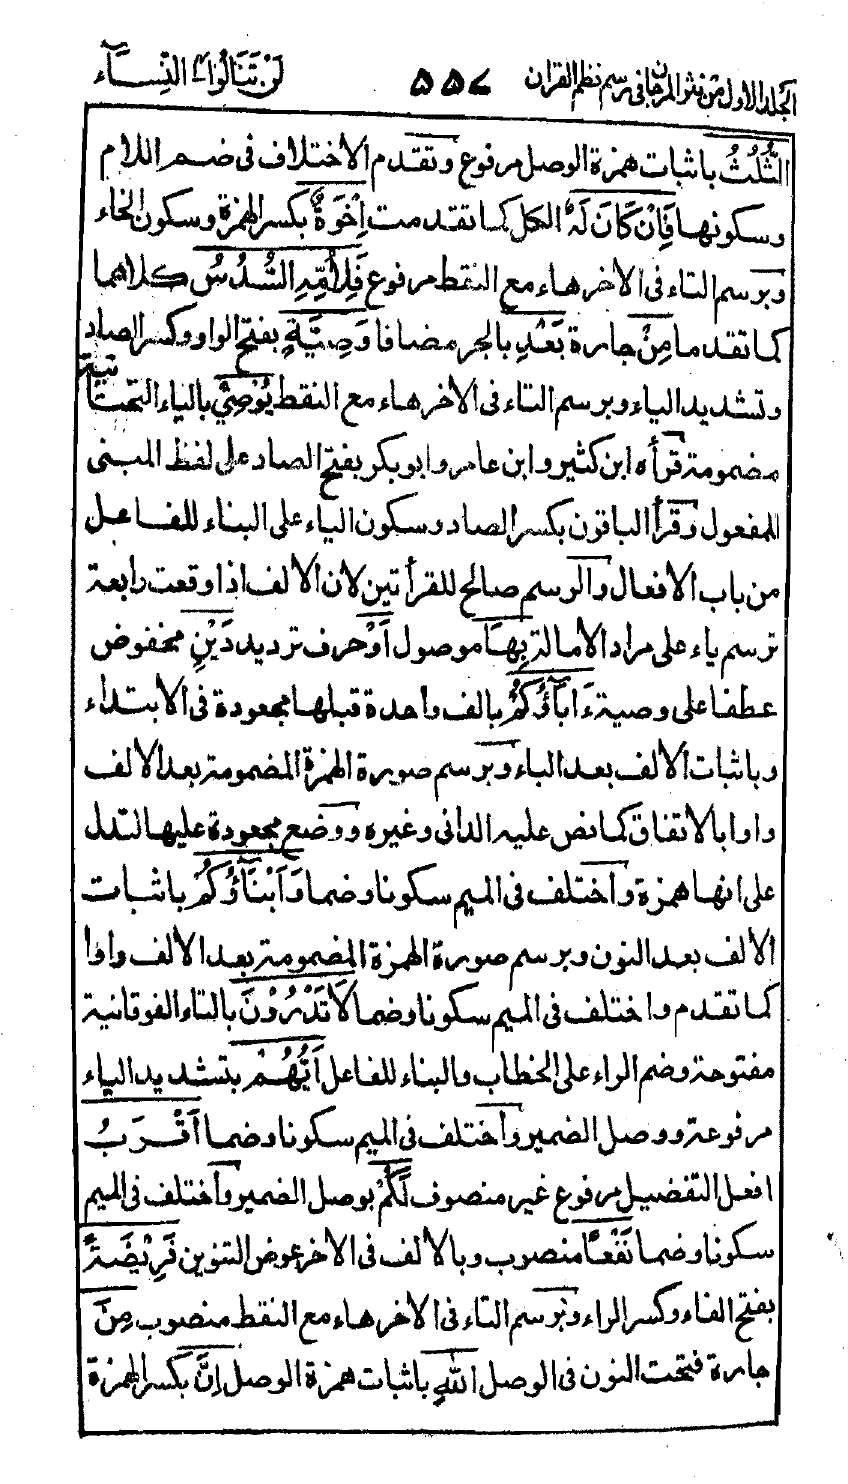 الجلد الاول من نثر المرجان فى رسم نظم القران ٥٥٧ لن تنالوا٤ النسآء
الثُّلُثُ باثبات همزة الوصل مرفوع وتقدم الاختلاف فى ضم اللام
وسكونها فَاِنْ كَانَ لَهٗ الكل كما تقدمت اِخْوَةٌ بكسر الهمزة وسكون الخاء
وبرسم التاء فى الاخر هاء مع النقط مرفوع فَلِاُمِّهِ السُّدُسُ كلاهما
كما تقدما مِنْ جارة بَعْدِ بالجر مضافا وَصِيَّةٍ بفتح الواو وكسر الصاد
وتشديد الياء وبرسم التاء فى الاخر هاء مع النقط يُوْصِيْ بالياء التحتانية
مضمومة قرأه ابن كثير وابن عامر وابو بكر بفتح الصاد على لفظ المبنى
للمفعول وقرأ الباقون بكسر الصاد وسكون الياء على البناء للفاعل
من باب الافعال والرسم صالح للقرأتين لان الالف اذا وقعت رابعة
ترسم ياء على مراد الامالة بِهَآ موصول اَوْ حرف ترديد دَيْنٍ مخفوض
عطفا على وصية ءَابَآؤُكُمْ بالف واحدة قبلها مجعودة فى الابتداء
وباثبات الالف بعد الباء وبرسم صورة الهمزة المضمومة بعد الالف
واوا بالاتفاق كما نص عليه الدانى وغيره ووضع مجعودة عليها لتدل
على انها همزة واختلف فى الميم سكونا وضما وَاَبْنَآؤُكُمْ باثبات
الالف بعد النون وبرسم صورة الهمزة المضمومة بعد الالف واوا
كما تقدم واختلف فى الميم سكونا وضما لَا تَدْرُوْنَ بالتاء الفوقانية
مفتوحة وضم الراء على الخطاب والبناء للفاعل اَيُّهُمْ بتشديد الياء
مرفوعة ووصل الضمير واختلف فى الميم سكونا وضما اَقْرَبُ
افعل التفضيل مرفوع غير منصوف لَكُمْ بوصل الضمير واختلف فى الميم
سكونا وضما نَفْعًا منصوب وبالالف فى الاخر عوض التنوين فَرِيْضَةً
بفتح الفاء وكسر الراء وبرسم التاء فى الاخر هاء مع النقط منصوب مِنَ
جارة فتحت النون فى الوصل اللّٰهِ باثبات همزة الوصل اِنَّ بكسر الهمزة